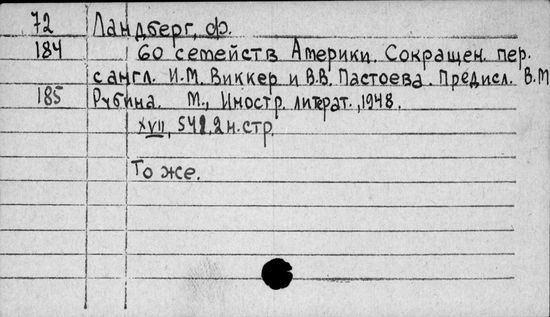 72 Ландберг, Ф.
184 60 семейств Америки. Сокращен. пер.
с англ. И.М. Виккер и В.В. Пастоева. Предисл. В.М
185 Рубина. М., Иностр. литерат., 1948.
XVII, 541, 2 н. стр.
То же.